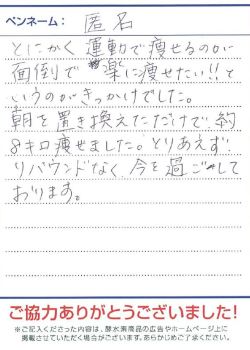 ペンネーム： 匿名
とにかく 運動で痩せるのが
面倒で 楽に痩せたい!!と
いうのがきっかけでした。
朝を置き換えただけで、約
8キロ痩せました。とりあえず、
リバウンドなく 今を過ごして
おります。
ご協力ありがとうございました!
※ご記入くださった内容は、酵水素商品の広告やホームページ上に
掲載させていただく場合がございます。あらかじめご了承ください。